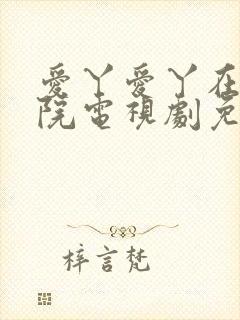 愛丫愛丫在
院電視劇免
梓言梵